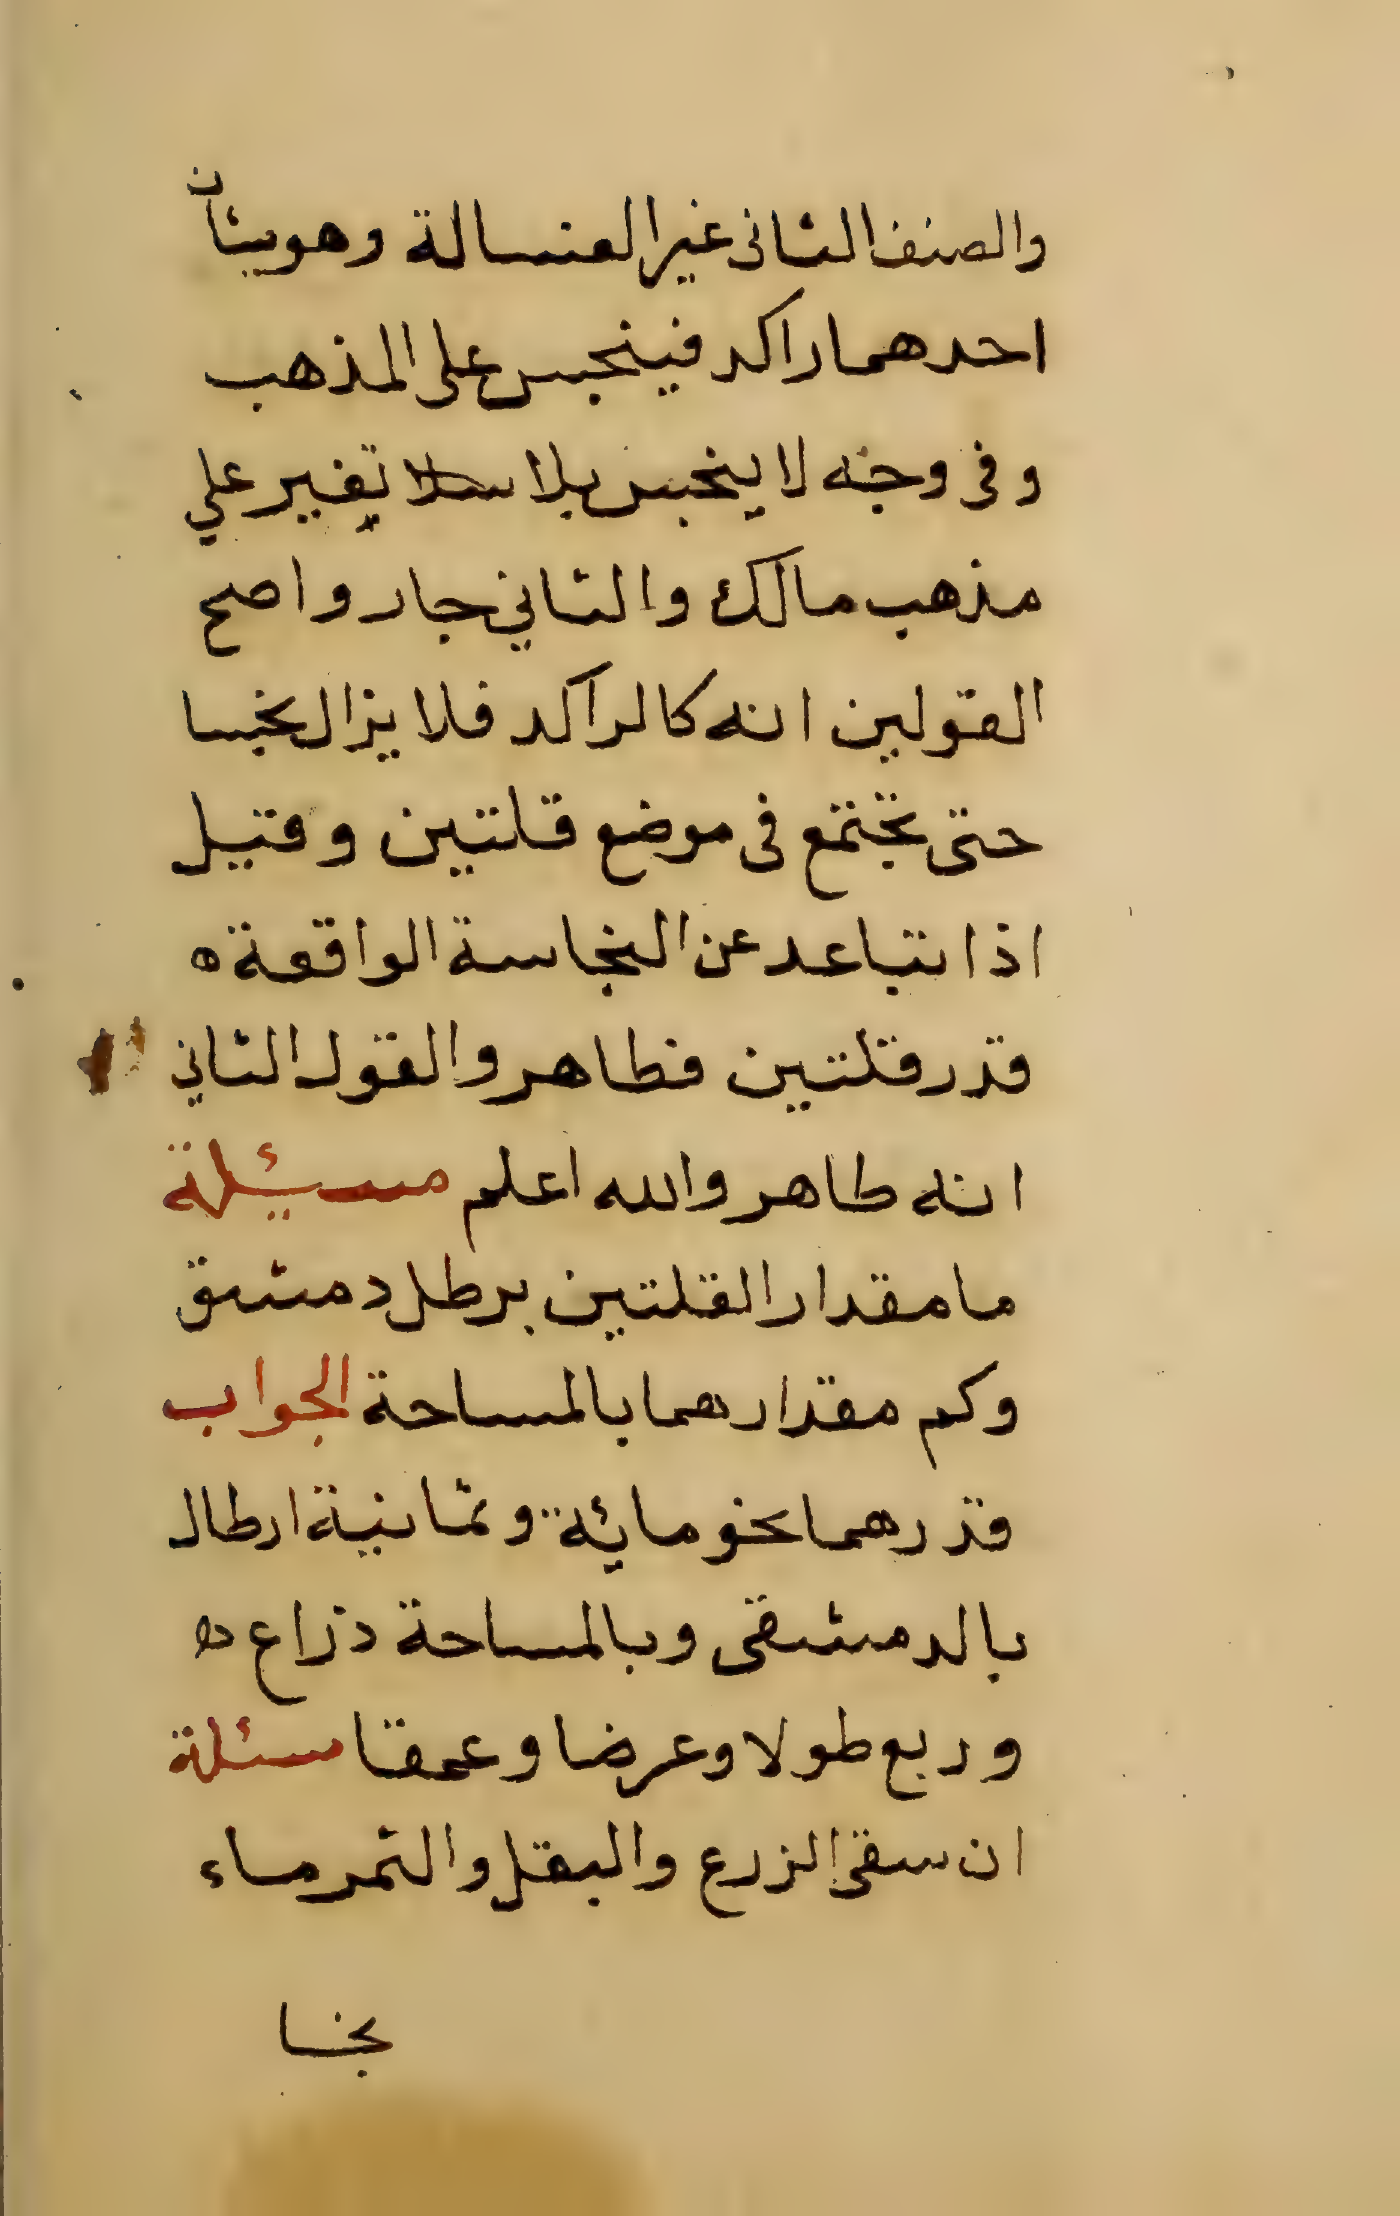 والصنف الثانى غير الغسالة وهو شيئان
احدهما راكد فينجس على المذهب
وفى وجه لا ينجس بلا تغير علي
مذهب مالك والثاني جار واصح
القولين انه كالراكد فلا يزال نجسا
حتى تجتمع فى موضع قلتين وقيل
اذا تباعد عن النجاسة الواقعة ه
قدر قلتين فطاهر والقول الثاني
انه طاهر والله اعلم مسيئلة
ما مقدار القلتين برطل دمشق
وكم مقدارهما بالمساحة الجواب
قدرهما نحو مائة وثمانية ارطال
بالدمشقى وبالمساحة ذراع
وربع طولا وعرضا وعمقا مسئلة
ان سقى الزرع والبقل والثمر ماء
نجسا